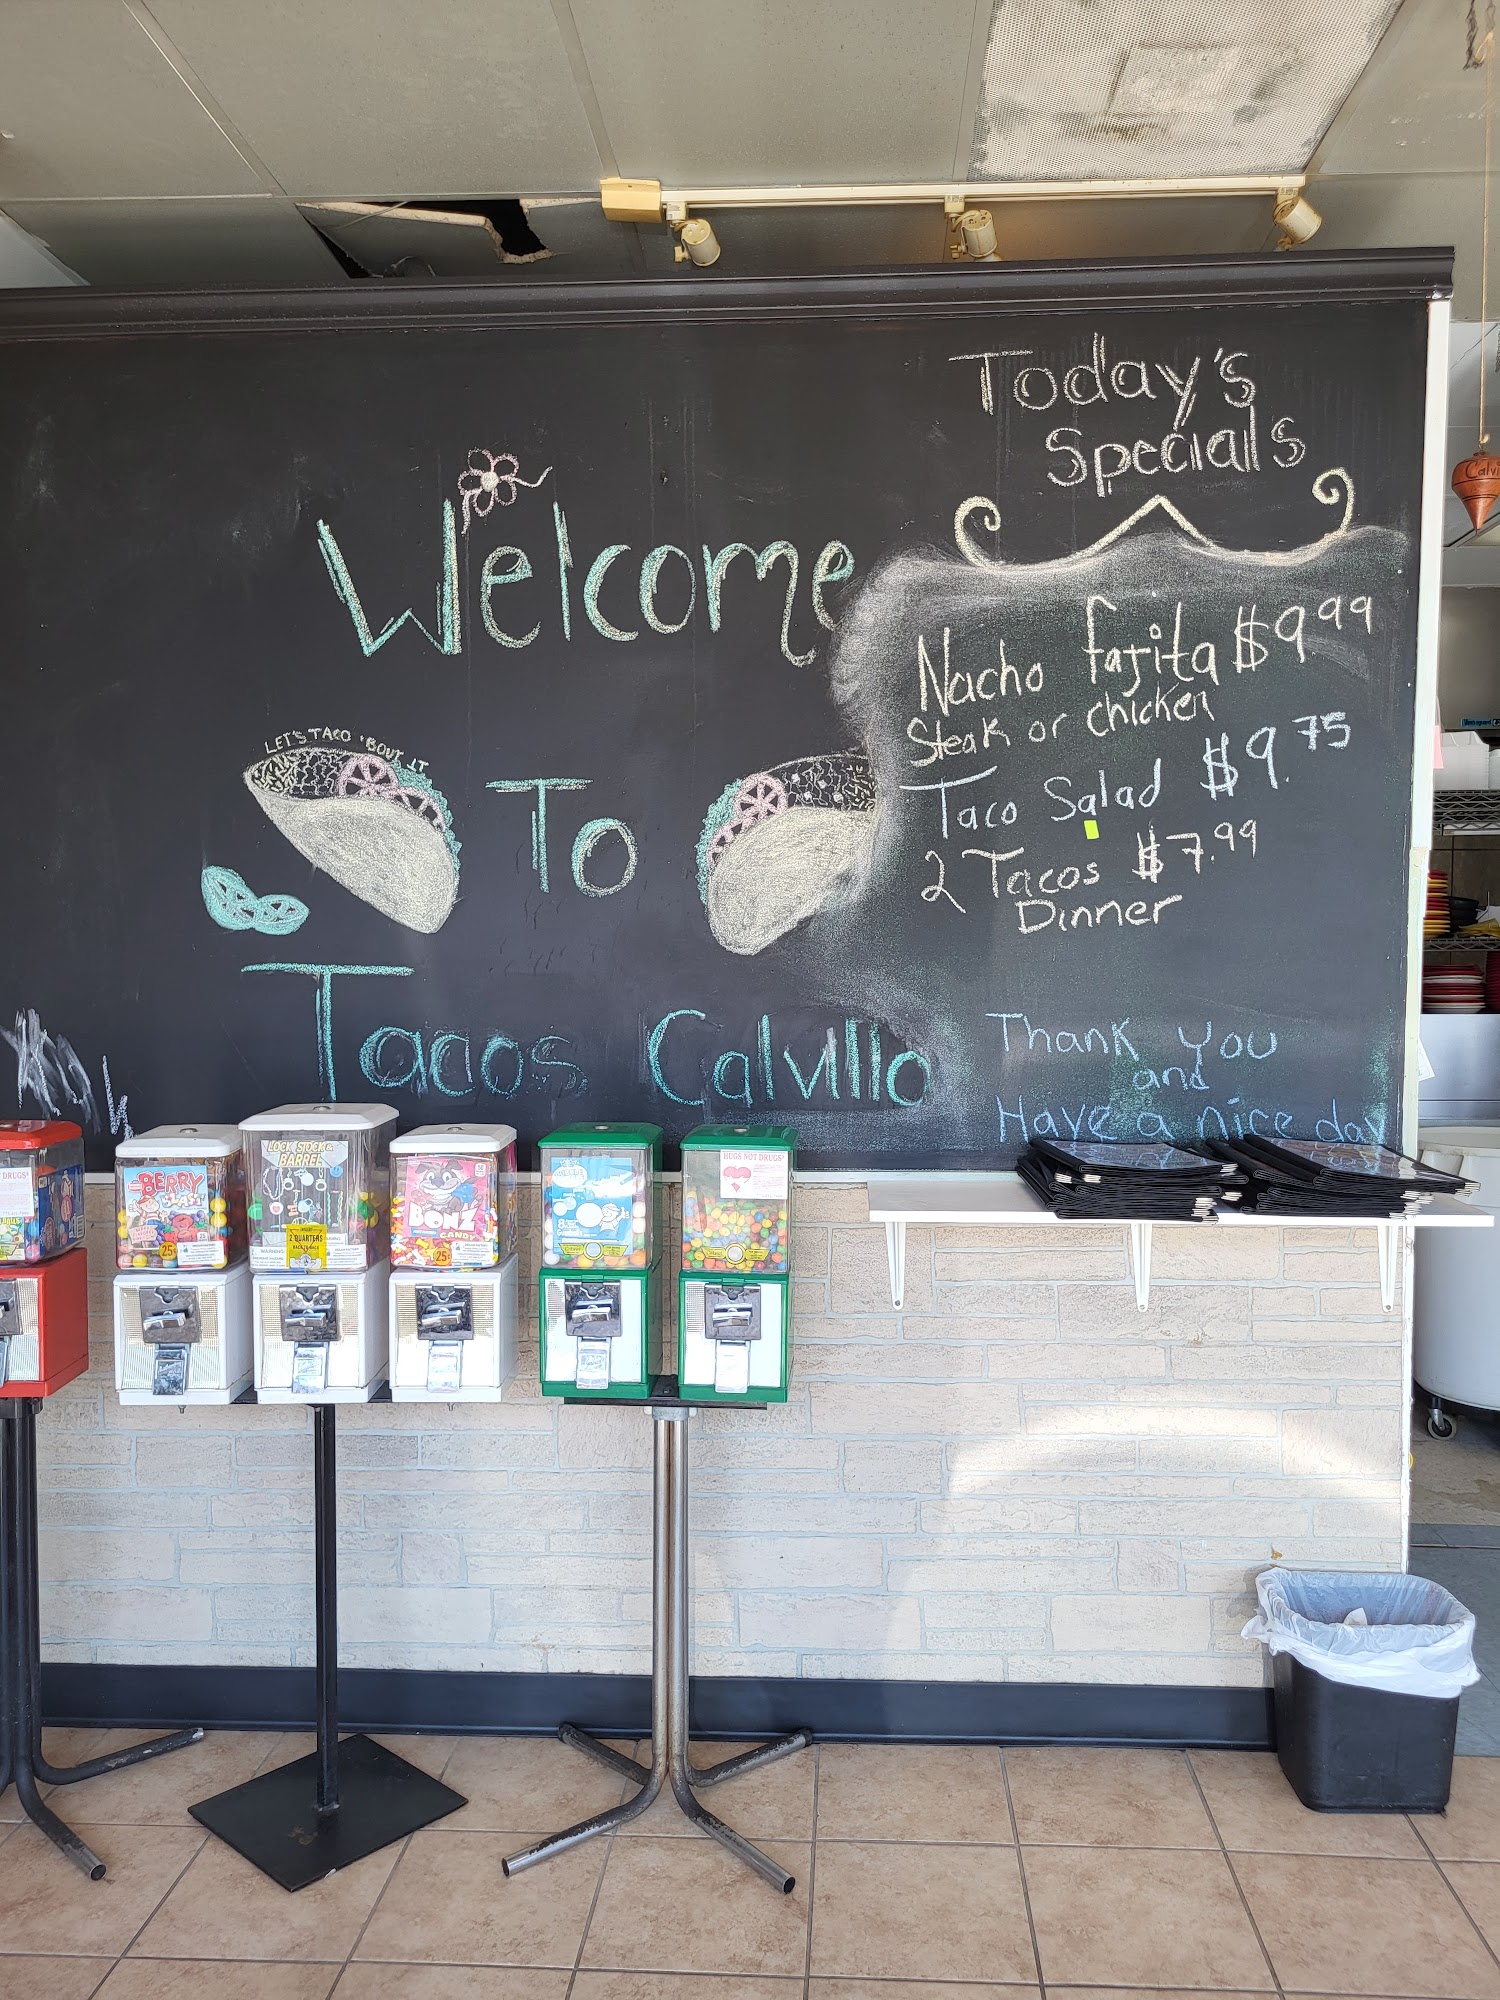 Today's
Specials
Welcome
Nacho fajita $9.99
Steak or chicken
LET'S TACO 'BOUT IT
To
Taco Salad $9.75
2 Tacos $7.99
Dinner
Tacos Calvillo
Thank you
and
Have a nice day
BERRY
BLAST
25¢
LOCK STOCK &
BARREL
2 QUARTERS
BONZ
CANDY
25¢
HUGS NOT DRUGS
DRUGS